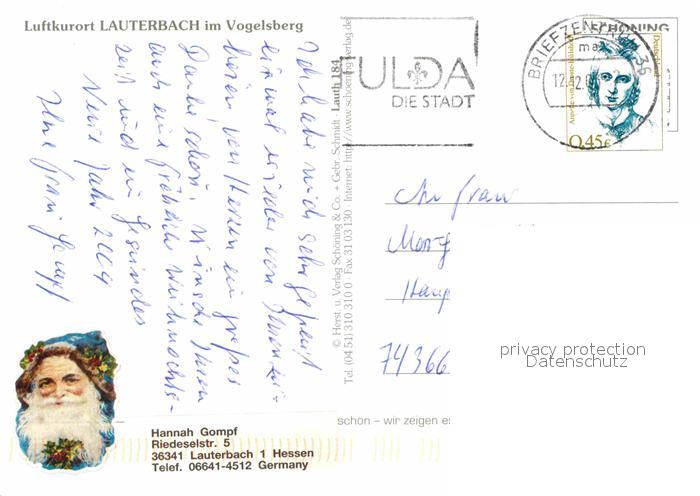 Luftkurort LAUTERBACH im Vogelsberg
Ich habe mich sehr gefreut
einmal wieder von Ihnen zu
hören, von Herzen ein großes
Dankeschön. Wünsche Ihnen
auch eine fröhliche Weihnachts-
zeit und ein gesundes
Neues Jahr 2004
Ihre Frau Gompf
© Herst. u. Verlag Schöning & Co. + Gebr. Schmidt · Lauth 184
Tel. (04 51) 310 310 0 Fax 31 03 130 Internet: http://www.schoening-verlag.de
ULDA
DIE STADT
BRIEFZEN
36
12.12.
SCHÖNING
ma
Deutschland
0,45€
An Frau
74366
privacy protection
Datenschutz
schön – wir zeigen es
Hannah Gompf
Riedeselstr. 5
36341 Lauterbach 1 Hessen
Telef. 06641-4512 Germany